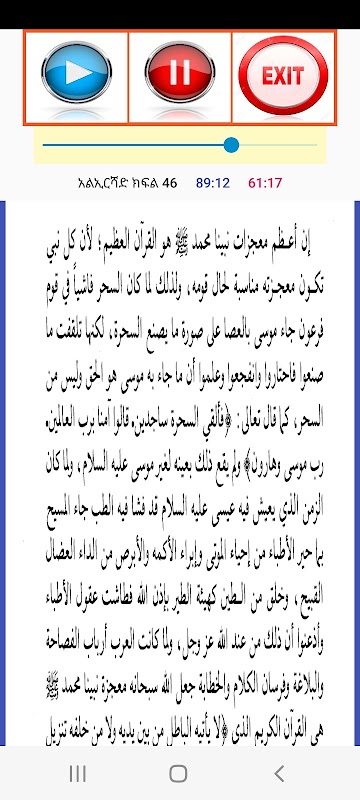 EXIT
አልኢርሻድ ክፍል 46 89:12 61:17
إن أعظم معجزات نبينا محمد ﷺ هو القرآن العظيم؛ لأن كل نبي
تكون معجزته مناسبة لحال قومه، ولذلك لما كان السحر فاشياً في قوم
فرعون جاء موسى بالعصا على صورة ما يصنع السحرة، لكنها تلقفت ما
صنعوا فاحتاروا وانفجعوا وعلموا أن ما جاء به موسى هو الحق وليس من
السحر، كما قال تعالى: ﴿فألقي السحرة ساجدين. قالوا آمنا برب العالمين.
رب موسى وهارون﴾ ولم يقع ذلك بعينه لغير موسى عليه السلام، ولما كان
الزمن الذي يعيش فيه عيسى عليه السلام قد فشا فيه الطب جاء المسيح
بما حير الأطباء من إحياء الموتى وإبراء الأكمه والأبرص من الداء العضال
القبيح، وخلق من الطين كهيئة الطير بإذن الله فطاشت عقول الأطباء
وأذعنوا أن ذلك من عند الله عز وجل، ولما كانت العرب أرباب الفصاحة
والبلاغة وفرسان الكلام والخطابة جعل الله سبحانه معجزة نبينا محمد ﷺ
هي القرآن الكريم الذي ﴿لا يأتيه الباطل من بين يديه ولا من خلفه تنزيل